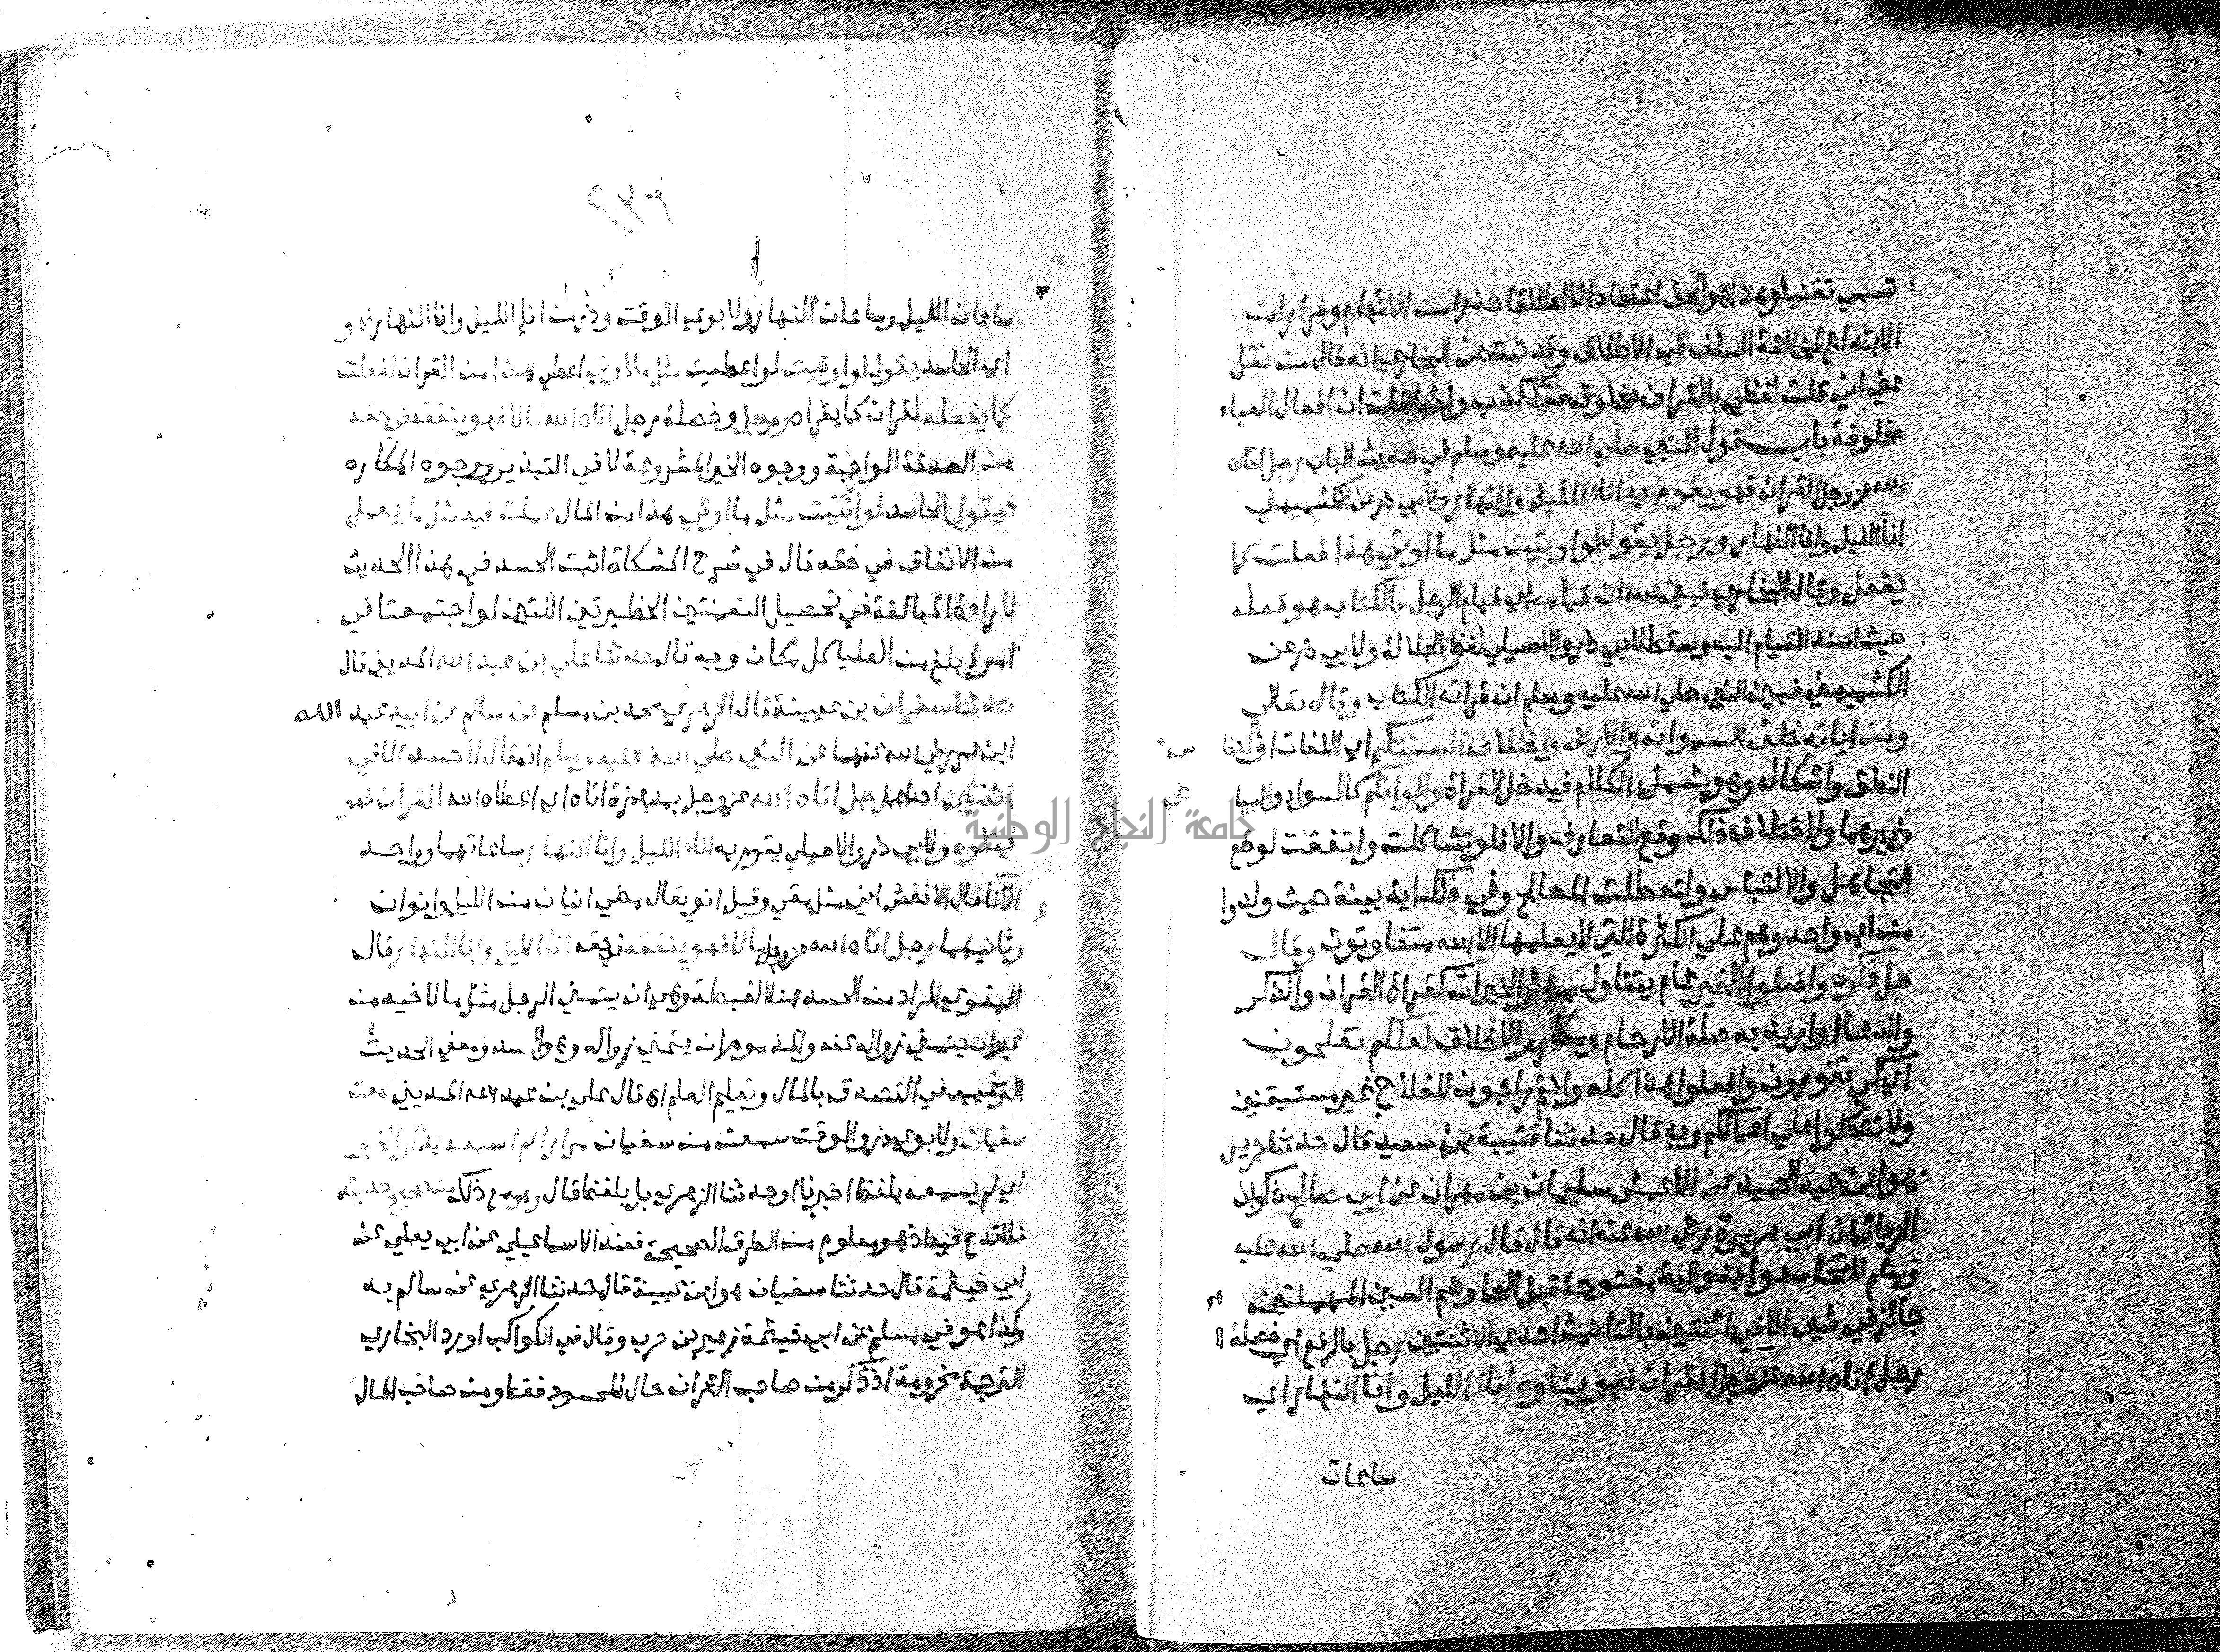 تسمي تغنيا وهذا هو الحق اعتقادا لا اطلاقا حذرا من الايهام وفرارا من
الابتداع لمخالفة السلف في الاطلاق وقد ثبت عن البخاري انه قال من نقل
عني اني قلت لفظي بالقران مخلوق فقد كذب وانما قلت ان افعال العباد
مخلوقة باب قول النبي صلي الله عليه وسلم في حديث الباب رجل اتاه
الله عز وجل القران فهو يقوم به اناء الليل والنهار ولابي ذر عن الكشميهني
انآ الليل وانا النهار ورجل يقول لو اوتيت مثل ما اوتي هذا فعلت كما
يفعل وقال البخاري فبين الله ان قيامه اي قيام الرجل بالكتاب هو فعله
حيث اسند القيام اليه وسقط لابي ذر والاصيلي لفظ الجلالة ولابي ذر عن
الكشميهني فبين النبي صلي الله عليه وسلم ان قراته الكتاب وقال تعالي
ومن اياته خلق السموات والارض واختلاف السنتكم اي اللغات او اجناس
النطق واشكاله وهو يشمل الكلام فيدخل القراة والوانكم كالسواد والبياض
وغيرهما ولاختلاف ذلك وقع التعارف والا فلو تشاكلت واتفقت لوقع
التجاهل والالتباس ولتعطلت المصالح وفي ذلك اية بينة حيث ولدوا
من اب واحد وهم علي الكثرة التي لا يعلمها الا الله متفاوتون وقال
جل ذكره وافعلوا الخير عام يتناول سائر الخيرات كقراة القران والذكر
والدعا او اريد به صلة الارحام ومكارم الاخلاق لعلكم تفلحون
اي كي تفوزوا وافعلوا هذا كله وانتم راجون للفلاح غير مستيقنين
ولا تتكلوا علي اعمالكم وبه قال حدثنا قتيبة بن سعيد قال حدثنا جرير
هو ابن عبد الحميد عن الاعمش سليمان بن مهران عن ابي صالح ذكوان
الزيات عن ابي هريرة رضي الله عنه انه قال قال رسول الله صلي الله عليه
وسلم لا تحاسدوا بفوقية مفتوحة قبل الحا وضم السين المهملتين
جائز في شي الا في اثنتين بالتانيث احدي الاثنتين رجل بالرفع اي خصلة
رجل اتاه الله عز وجل القران فهو يتلوه اناء الليل وانآ النهار اي
ساعات
٢٣٦
ساعات الليل وساعات النهار ولابوي الوقت وذر من اناء الليل وانا النهار فهو
اي الحاسد يقول لو اوتيت لو اعطيت مثل ما اوتي اعطي هذا من القران لفعلت
كما يفعل لقرات كما يقراه ورجل وخصلة رجل اتاه الله مالا فهو ينفقه في حقه
من الصدقة الواجبة ووجوه الخير المشروعة لا في التبذير ووجوه المكاره
فيقول الحاسد لو اوتيت مثل ما اوتي هذا من المال عملت فيه مثل ما يعمل
من الانفاق في حقه قال في شرح المشكاة اثبت الحسد في هذا الحديث
لارادة المبالغة في تحصيل النعمتين الخطيرتين اللتين لو اجتمعتا في
امرئ بلغ من العليا كل مكان وبه قال حدثنا علي بن عبد الله المديني قال
حدثنا سفيان بن عيينة قال الزهري محمد بن مسلم عن سالم عن ابيه عبد الله
ابن عمر رضي الله عنهما عن النبي صلي الله عليه وسلم انه قال لا حسد الا في
اثنتين احداهما رجل اتاه الله عز وجل بمد همزة اتاه اي اعطاه الله القران فهو
يتلوه ولابي ذر والاصيلي يقوم به اناء الليل وانآ النهار ساعاتهما وواحد
الآنا قال الاخفش اني مثل معي وقيل انو يقال مضي انيان من الليل وانوان
وثانيهما رجل اتاه الله عز وجل مالا فهو ينفقه في حقه انآ الليل وانآ النهار قال
البغوي المراد من الحسد هنا الغبطة وهي ان يتمني الرجل مثل ما لاخيه من
غير ان يتمني زواله عنه والمذموم ان يتمني زواله وهو الحسد ومعني الحديث
الترغيب في التصدق بالمال وتعليم العلم اه قال علي بن عبد الله المديني سمعت
سفيان ولابوي ذر والوقت سمعت من سفيان مرارا لم اسمعه يذكر الخبر
اي لم يسمعه بلفظ اخبرنا او حدثنا الزهري بل بلفظ قال وهو مع ذلك من صحيح حديثه
فلا قدح فيه اذ هو معلوم من الطرق الصحيحة فعند الاسماعيلي عن ابي يعلي عن
ابي خيثمة قال حدثنا سفيان هو ابن عيينة قال حدثنا الزهري عن سالم به
وكذا هو في مسلم عن ابي خيثمة زهير بن حرب وقال في الكواكب اورد البخاري
الترجمة مخرومة اذ ذكر من صاحب القران حال المحسود فقط ومن صاحب المال
جامعة النجاح الوطنية